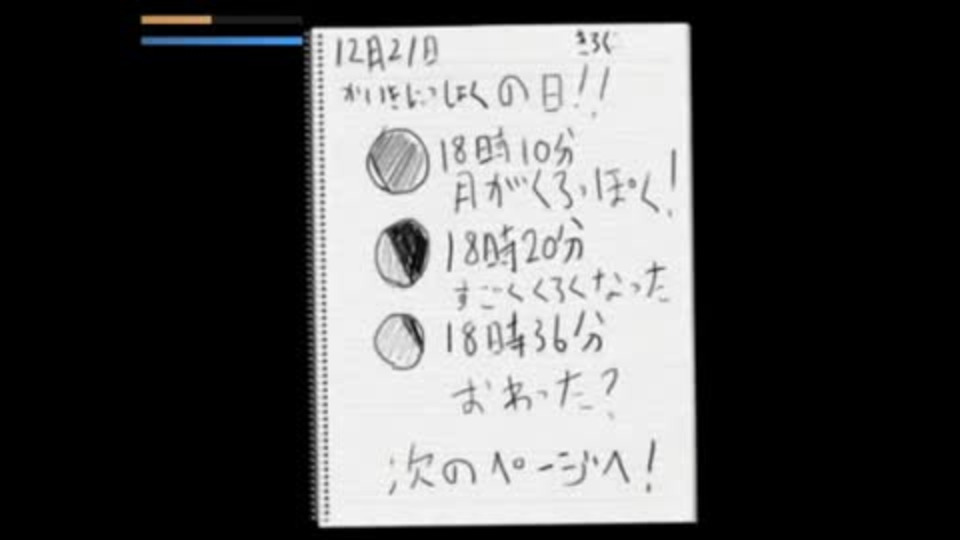 12月21日
きろく
かいきにっしょくの日!!
18時10分
月がくろっぽく!
18時20分
すごくくろくなった
18時36分
おわった?
次のページへ!